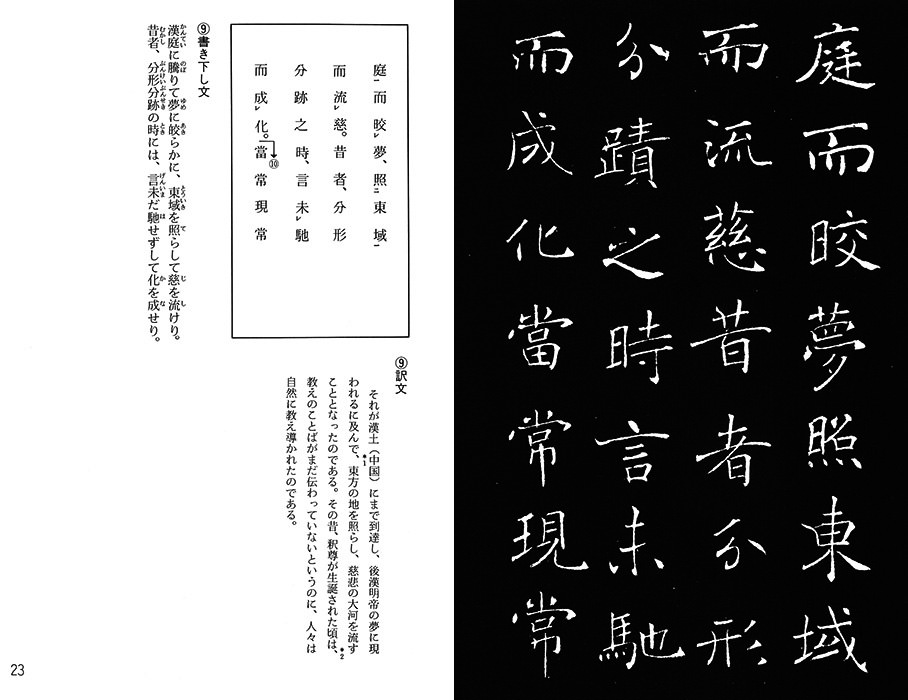 庭而晈夢照東域
而流慈昔者分形
分蹟之時言未馳
而成化當常現常
⑨訳文
それが漢土（中国）にまで到達し、後漢明帝の夢に現
＊1
われるに及んで、東方の地を照らし、慈悲の大河を流す
こととなったのである。その昔、釈尊が生誕された頃は、
＊2
教えのことばがまだ伝わっていないというのに、人々は
自然に教え導かれたのである。
庭一而晈レ夢、照二東域一
而流レ慈。昔者、分形
分跡之時、言未レ馳
而成レ化。⑩當常現常
⑨書き下し文
漢庭に騰りて夢に晈らかに、東域を照らして慈を流けり。
かんてい のぼ ゆめ あき とういき て じ し
昔者、分形分跡の時には、言未だ馳せずして化を成せり。
むかし ぶんけいぶんせき とき げんいま は か な
23